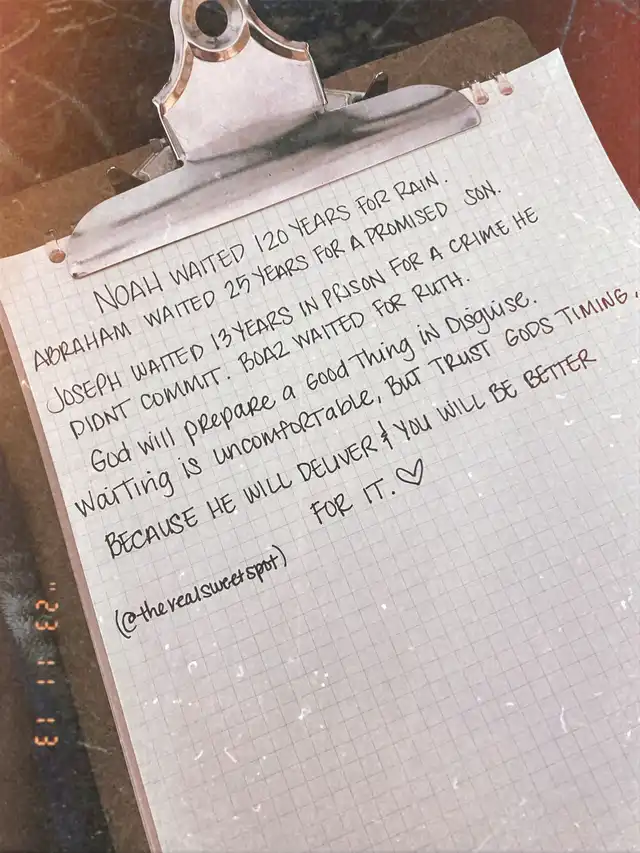 NOAH WAITED 120 YEARS FOR RAIN.
ABRAHAM WAITED 25 YEARS FOR A PROMISED SON.
JOSEPH WAITED 13 YEARS IN PRISON FOR A CRIME HE
DIDNT COMMIT. BOAZ WAITED FOR RUTH.
God will prepare a good thing in disguise.
Waiting is uncomfortable, but TRUST GODS TIMING.
BECAUSE HE WILL DELIVER & YOU WILL BE BETTER
FOR IT. ♡
(@therealsweetspot)
'23 11 13